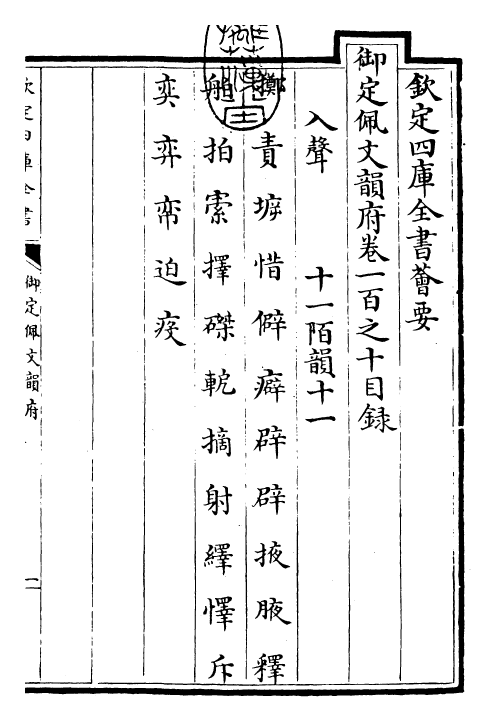 欽定四庫全書薈要
御定佩文韻府卷一百之十目録
入聲　十一陌韻十一
擲責塉惜僻癖辟辟掖腋釋
舶拍索擇磔軶摘射繹懌斥
奕弈帟迫疫
欽定四庫全書
御定佩文韻府
一